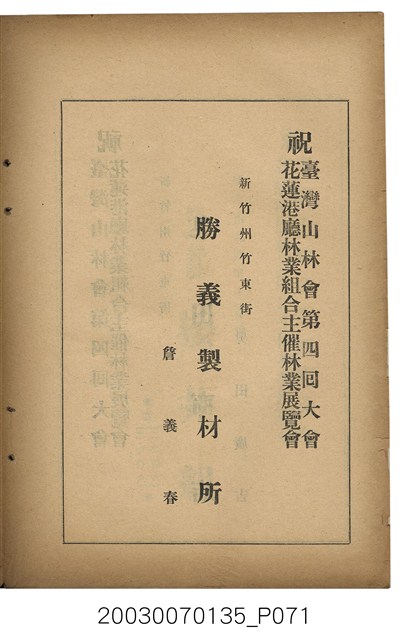 祝臺灣山林會第四回大會
花蓮港廳林業組合主催林業展覽會
新竹州竹東街
勝義製材所
詹義春
20030070135_P071